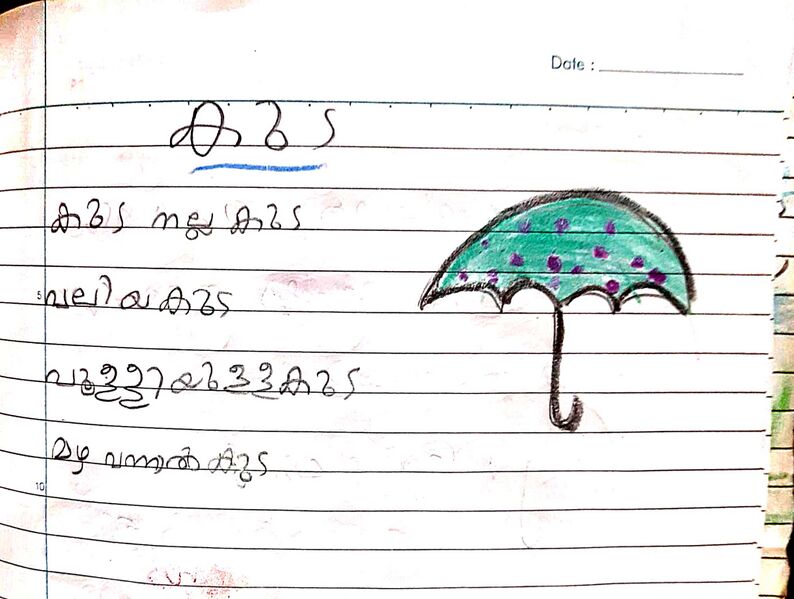 Date :
കുട
കുട നല്ല കുട
വലിയ കുട
5
പുള്ളിയുള്ള കുട
മഴ വന്നാൽ കുട
10